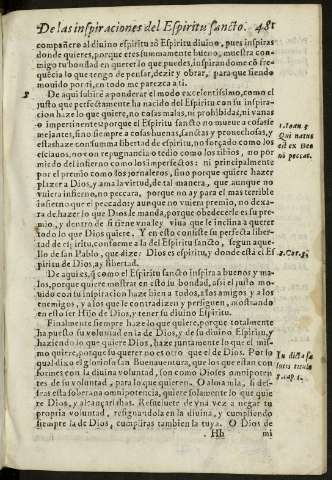 De las inspiraciones del Espiritu sancto. 481
compañero al divino espiritu ,õ Espiritu divino, pues inspiras
donde quieres, porque eres summamente bueno, muestra con
migo tu bondad en querer lo que puedes, inspirandome cõ fre
quẽcia lo que tengo de pensar, dezir y obrar, para que siendo
movido por ti, en todo me parezca a ti.
De aqui subire a ponderar el modo excelentissimo, como el
justo que perfectamente ha nacido del Espiritu con su inspira-
cion haze lo que quiere, no cosas malas, ni prohibidas, ni vanas
o impertinentes: porque el Espiritu sancto no mueve a cosas se
mejantes, sino siempre a cosas buenas, sanctas y provechosas, y
estas haze con summa libertad de espiritu, no forçado como los
esclavos, no con repugnancia o tedio como los tibios, no por
miedo del infierno como los imperfectos: ni principalmente
por el premio como los jornaleros, sino porque quiere hazer
plazer a Dios, y ama la virtud, de tal manera, que aunque no
vuiera infierno, no peccara, porque no ay para el mas terrible
infierno que el peccado: y aunque no vuiera premio, no dexa-
ra de hazer lo que Dios le manda, porque obedecerle es su pre-
mio, y dentro de si tiene vna ley viva que le inclina a querer
todo lo que Dios quiere. Y en esto consiste su perfecta libertad
de espiritu, conforme a la del Espiritu sancto, segun aque-
llo de san Pablo, que dize: Dios es espiritu, y donde està el Es
piritu de Dios, ay libertad.
De aqui es, q̃ como el Espiritu sancto inspira a buenos y ma-
los, porque quiere mostrar en esto su bondad, assi el justo mo-
vido con su inspiracion haze bien a todos, a los amigos y a los
enemigos, y a los que le contradizen y persiguen, mostrando
en esto ser Hijo de Dios, y tener su divino Espiritu.
Finalmente siempre haze lo que quiere, porque totalmente
ha puesto su voluntad en la de Dios, y de su divino Espiritu, y
haziendo lo que quiere Dios, haze juntamente lo que el mis-
mo quiere, porque su querer no es otro que el de Dios. Por lo
qual dixo el glorioso san Buenaventura, que los que estan con
formes con la divina voluntad, son como Dioses omnipoten
tes de su voluntad, para lo que quieren. O alma mia, si des-
seas esta soberana omnipotencia, quiere solamente lo que quie
re Dios, y alcançarás has. Resuelvete de vna vez a negar tu
propria voluntad, resignandola en la divina, y cumpliendo
siempre la de Dios, cumpliras tambien la tuya. O Dios de
Hh mi
1. Ioan. 3
Qui natus
est ex Deo
nõ peccat.
2. Cor. 3.